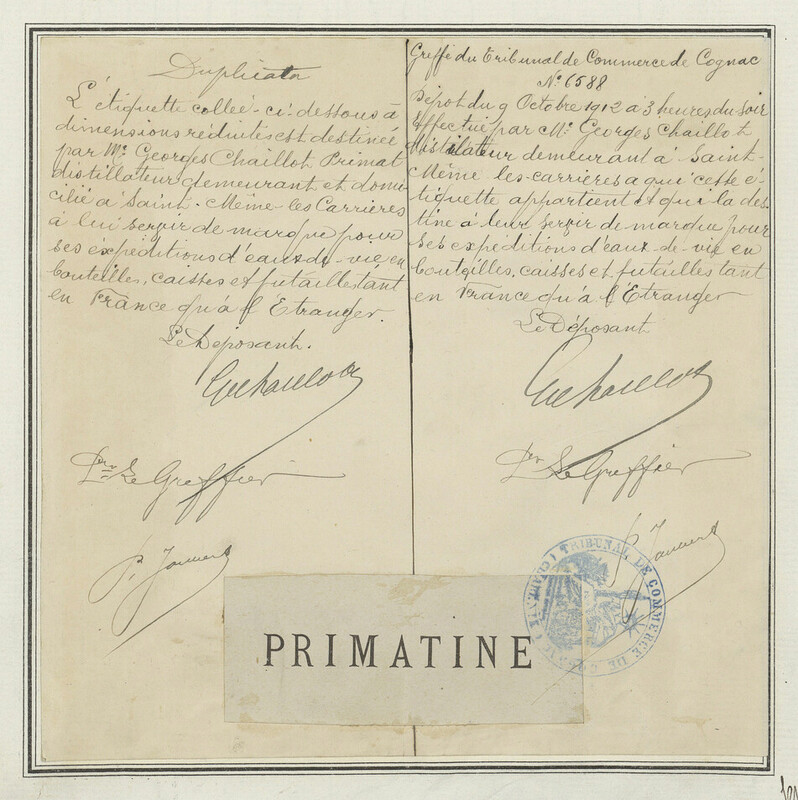 Duplicata
L'étiquette collée-ci-dessous à
dimensions réduites est destinée
par Mr. Georges Chaillot Primat
distillateur demeurant et domi
cilié à Saint-Même-les Carrières
à lui servir de marque pour
ses expéditions d'eaux-de-vie en
bouteilles, caisses et futailles tant
en France qu'à l'Etranger.
Le Déposant.
Pr. Le Greffier
Greffe du Tribunal de Commerce de Cognac
No. 6588
Dépôt du 9 Octobre 1912 à 3 heures du soir
Effectué par Mr. Georges Chaillot
distillateur demeurant à Saint-
Même les-carrières a qui cette é-
tiquette appartient et qui la des-
tine à leur servir de marque pour
ses expéditions d'eaux-de-vie en
bouteilles, caisses et futailles tant
en France qu'à l'Etranger
Le Déposant
Pr Le Greffier
TRIBUNAL DE COMMERCE DE COGNAC (CHARENTE)
PRIMATINE